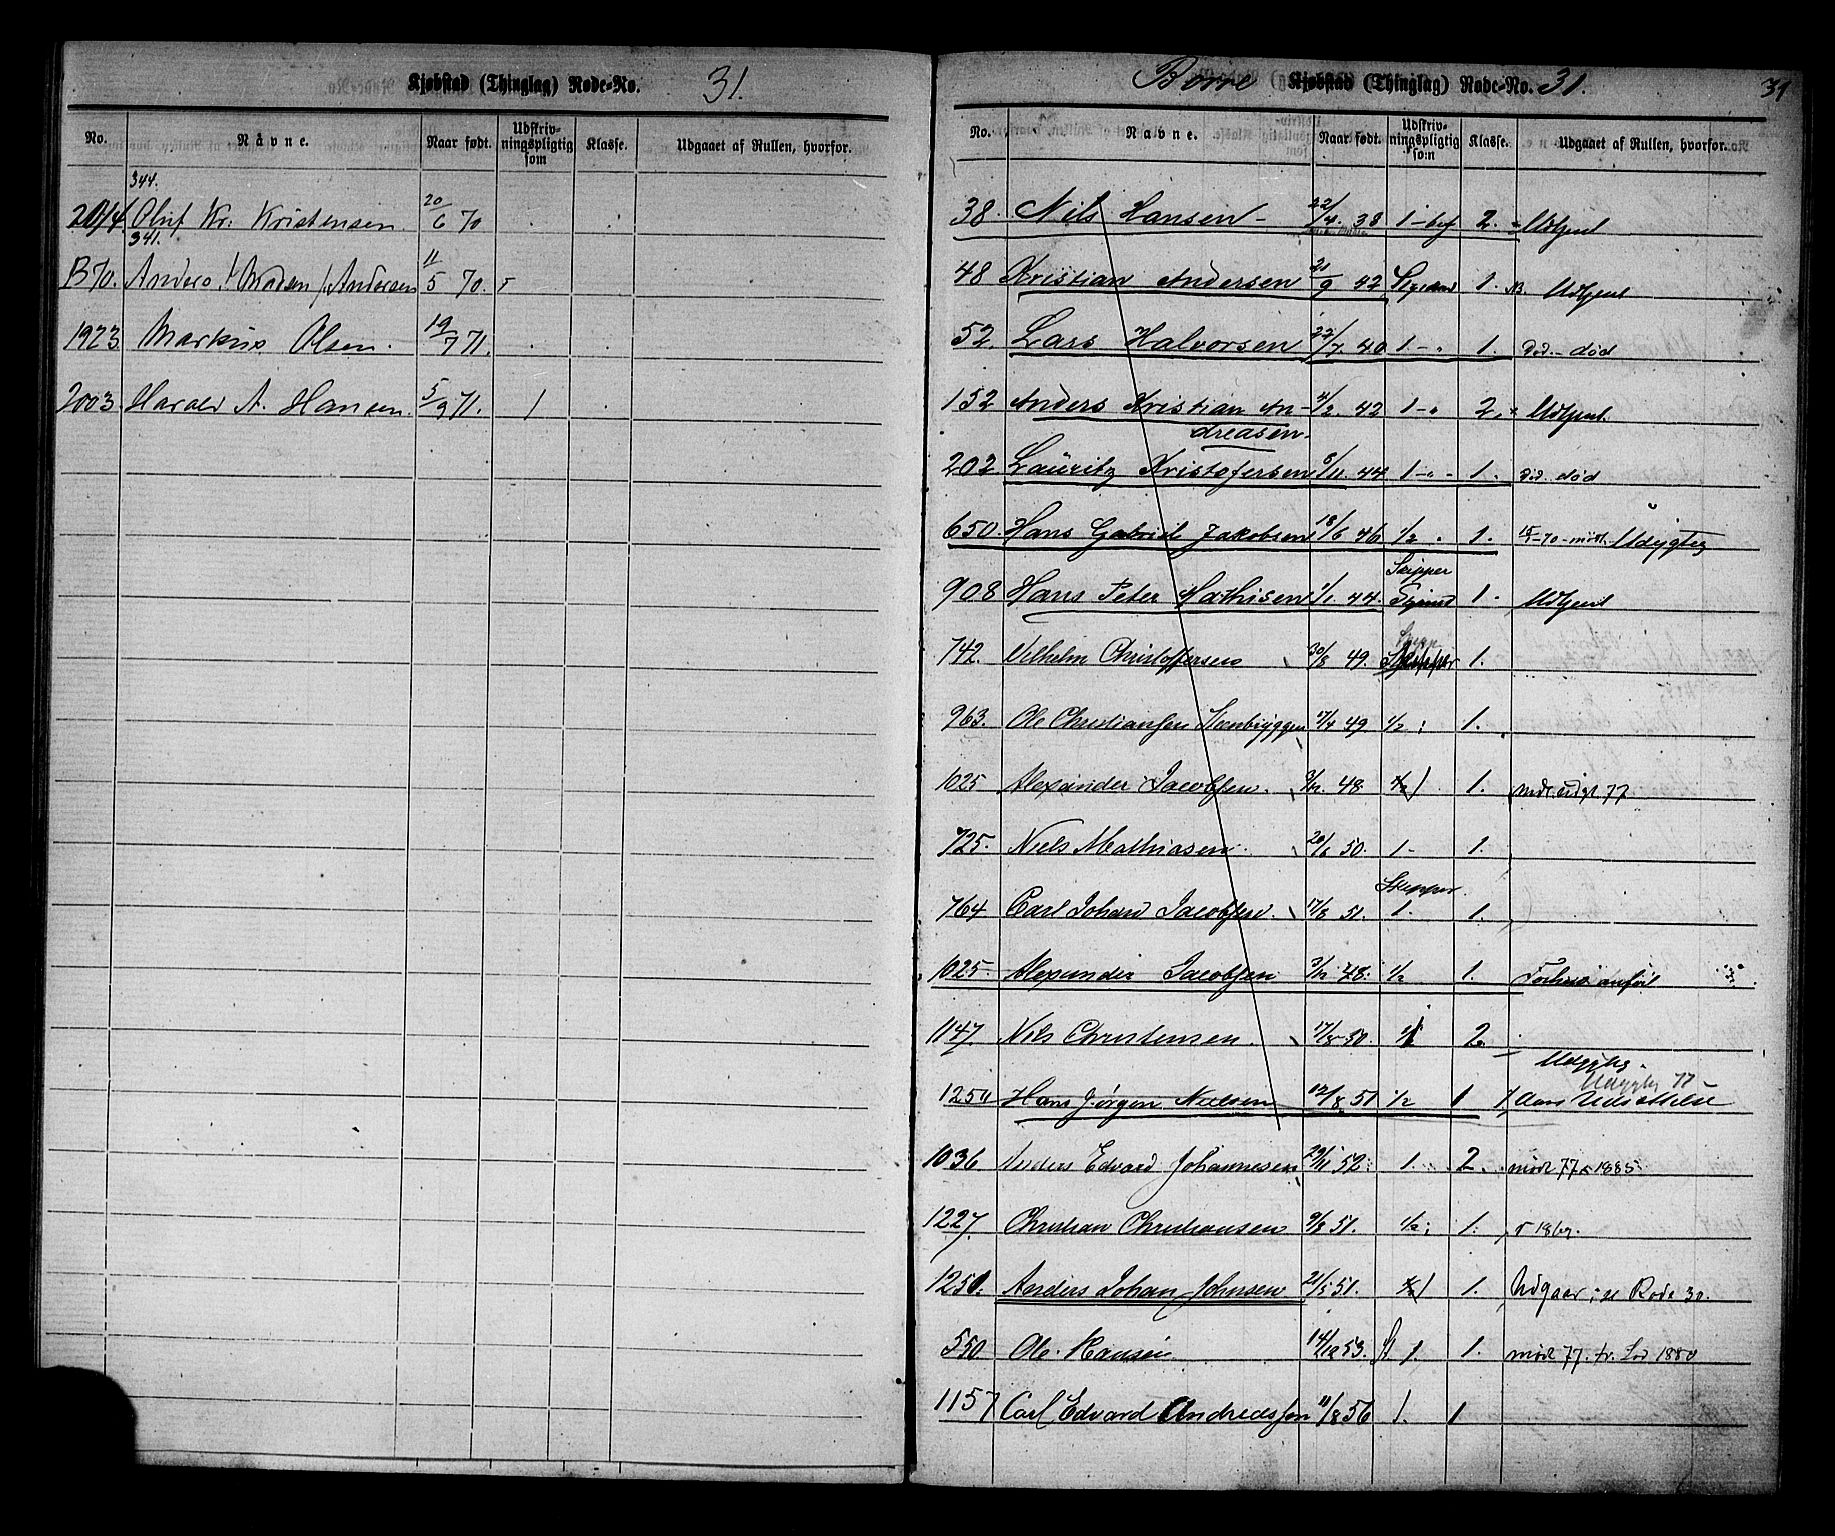 Kjøbstad (Thinglag) Rode-No. 31.
No. Navne. Naar født. Udskrivningspligtig som Klasse. Udgaaet af Rullen, hvorfor.
344.
2014 Oluf Kr. Kristensen 20/6 70
341.
B70. Anders Andersen 11/5 70.
1923. Markus Olsen. 19/7 71.
2003. Harald A. Hansen. 5/9 71. 1
Borre Kjøbstad (Thinglag) Rode-No. 31.
31
No. Navne. Naar født. Udskrivningspligtig som Klasse. Udgaaet af Rullen, hvorfor.
38. Nils Hansen 22/4. 38 1 2. Udtjent
48 Kristian Andersen 21/9 42 1. Udtjent
52. Lars Halvorsen 22/7 40 1 1. død
152 Anders Kristian An- 4/2 42 1 2. Udtjent.
dreasen.
202 Lauritz Kristofersen 8/11. 44 1 1. død
650. Hans Gabriel Jakobsen 18/6 46 1/2 1.
Skipper
908 Hans Peter Mathisen 1/1 44. 1. Udtjent
742. Vilhelm Christoffersen 30/8 49. Skipper 1.
963. Ole Christiansen Steenbryggen 17/4 49. 1/2 1.
1025 Alexander Jacobsen. 3/12. 48 1 1. 77
725. Niels Mathiasen. 20/6 50. 1 1.
Skipper.
764 Carl Johan Jacobsen. 17/8 51. 1. 1.
1025. Alexander Jacobsen 3/12 48. 1/2 1.
1147. Nils Christensen. 17/8 50. 2.
77
1251 Hans Jørgen Nielsen 12/8 51 1/2 1 Udsættelse
1036 Anders Edvard Johannesen 29/11 52. 1. 2. mødt 77 1885
1227. Christian Christiansen 9/8 51. 1/2 1.
1250. Anders Johan Johnsen 21/5 51. 1 1. Udgaar, se Rode 30.
550 Ole Hansen 14/12 53. 1. 1. mødt 77. 1880
1157 Carl Edvard Andreassen 11/8 56 1. 1